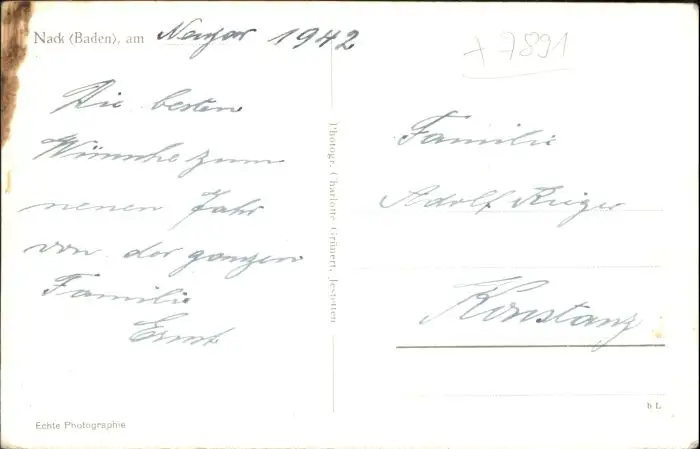 Nack (Baden), am Neujar 1942
Die besten
Wünsche zum
neuen Jahr
von der ganzen
Familie
Ernst
Photogr. Charlotte Grünert, Jestetten
+ 7891
Familie
Adolf Krüger
Konstanz
b L
Echte Photographie